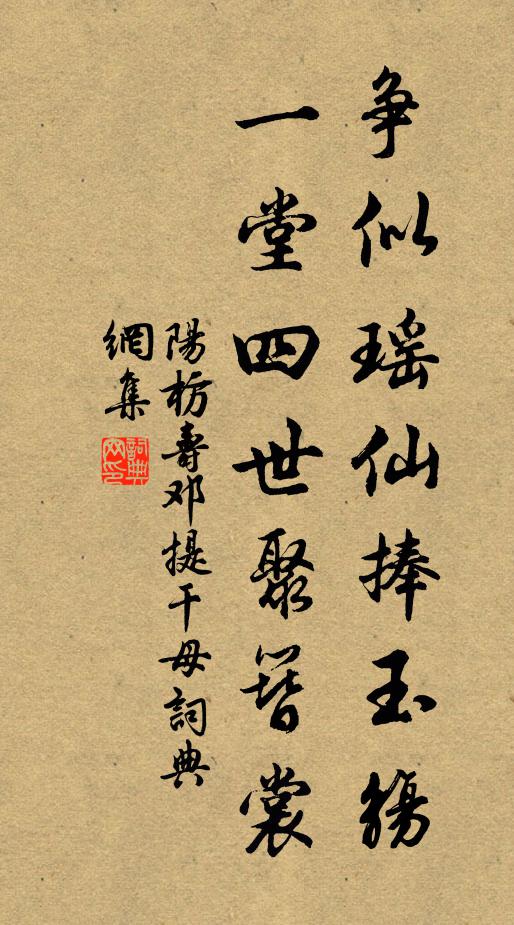 争似瑶仙捧玉觞
一堂四世聚簪裳
陽枋壽邓提干母詞典
網集
詞典網印